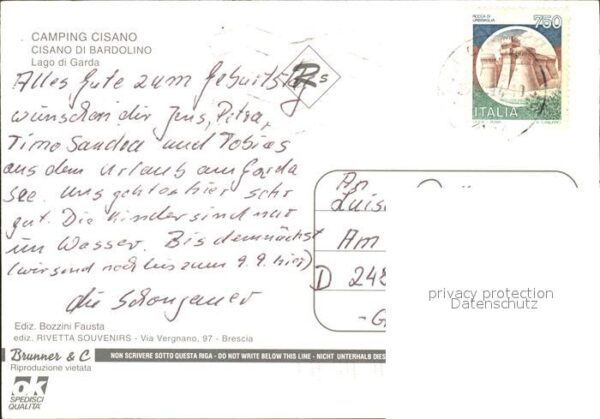 CAMPING CISANO
CISANO DI BARDOLINO
Lago di Garda
ROCCA DI URBISAGLIA
750
ITALIA
R s
Alles Gute zum Geburtstag
wünschen dir Jens, Petra,
Timo Sandra und Tobias
aus dem Urlaub am Garda
see. Uns geht es hier sehr
gut. Die Kinder sind nur
im Wasser. Bis demnächst
(wir sind noch bis zum 9.9. hier)
die Schongauer
An
Luis
Am
D 248
- G
privacy protection
Datenschutz
Ediz. Bozzini Fausta
ediz. RIVETTA SOUVENIRS - Via Vergnano, 97 - Brescia
Brunner & C
NON SCRIVERE SOTTO QUESTA RIGA - DO NOT WRITE BELOW THIS LINE - NICHT UNTERHALB DIES
Riproduzione vietata
OK
SPEDISCI
QUALITA'